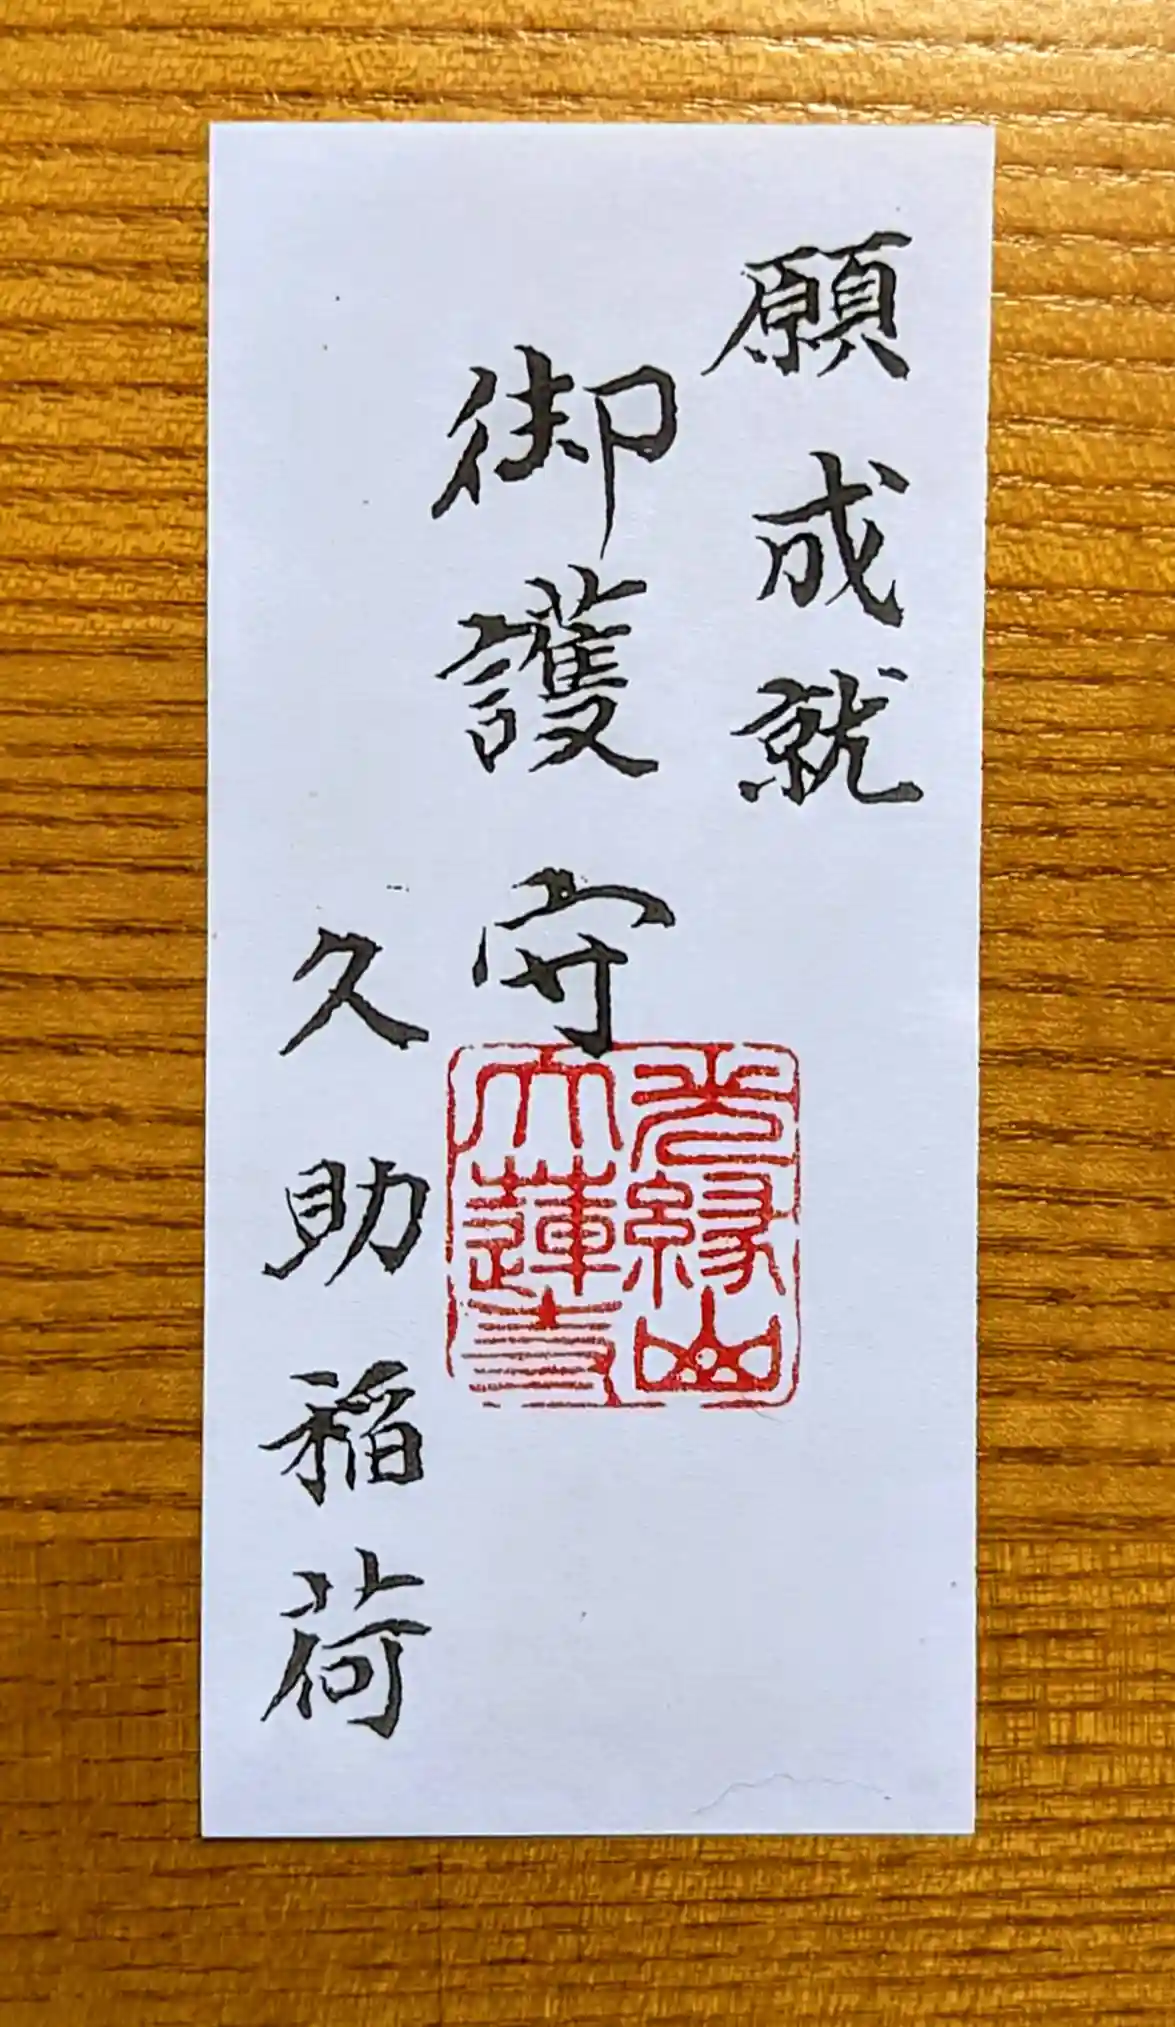 願成就
御護守
久助稲荷
光縁山
大蓮寺